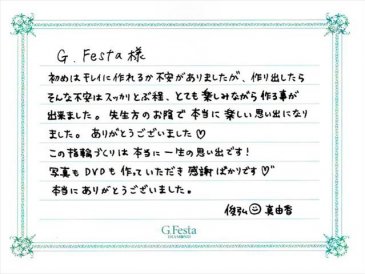 G.Festa様
初めはキレイに作れるか不安がありましたが、作り出したら
そんな不安はスッカリとぶ程、とても楽しみながら作る事が
出来ました。先生方のお陰で本当に楽しい思い出になり
ました。ありがとうございました♡
この指輪づくりは本当に一生の思い出です!
写真もDVDも作っていただき感謝ばかりです♡
本当にありがとうございました。
俊弘☺真由香
G.Festa
DIAMOND